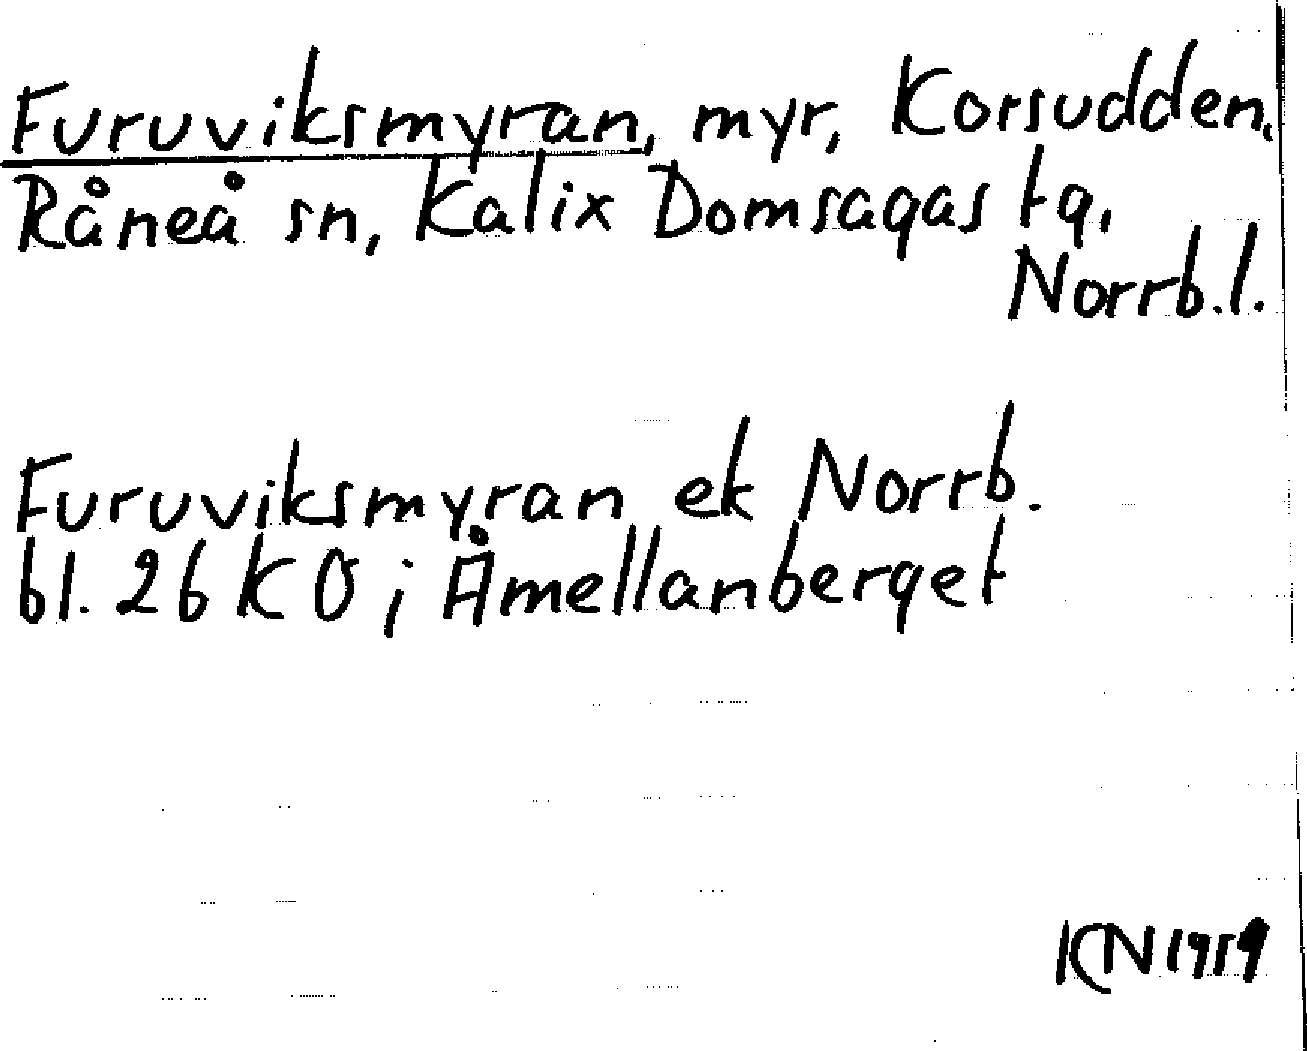 Furuviksmyran, myr, Korsudden,
Råneå sn, Kalix Domsagas tg,
Norrb.l.
Furuviksmyran ek Norrb.
bl. 26 KO; Åmellanberget
KN 1919